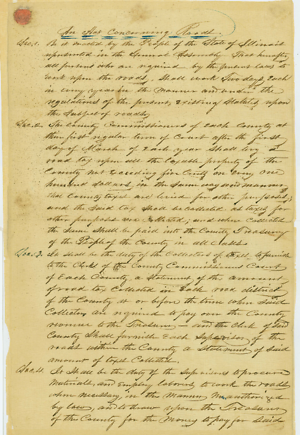 An Act Concerning Roads.
Sec. 1. Be it enacted by the People of the State of Illinois
represented in the General Assembly That hereafter
all persons who are required by the present laws to
work upon the roads, shall work two days each
in every year in the manner and under the
regulations of the present existing Statutes upon
the subject of roads.
Sec. 2. The County Commissioners of each County at
their first regular term of Court after the first
day of March of each year shall levy a
road tax upon all the taxable property of the
County not exceeding five cents on every one
hundred dollars, in the same way and manner
that County taxes are levied for other purposes
and the said tax shall be collected as taxes for
other purposes are collected, and when collected
the same shall be paid into the County Treasury
of the People of the County in all
Sec. 3. It shall be the duty of the Collectors of taxes, to furnish
to the Clerk of the County Commissioners Court
of each County a Statement of the amount
of road tax collected in each road district
of the County at or before the time when said
Collectors are required to pay over the County
revenue to the Treasurer and the Clerk of said
County shall furnish each Supervisor of the
roads within the County a Statement of said
amount of taxes Collected.
Sec. 4. It shall be the duty of the Supervisors to procure
Materials and employ laborers to work the roads
when necessary in the manner required
by law, and to draw upon the Treasurer
of the County for the money to pay for said